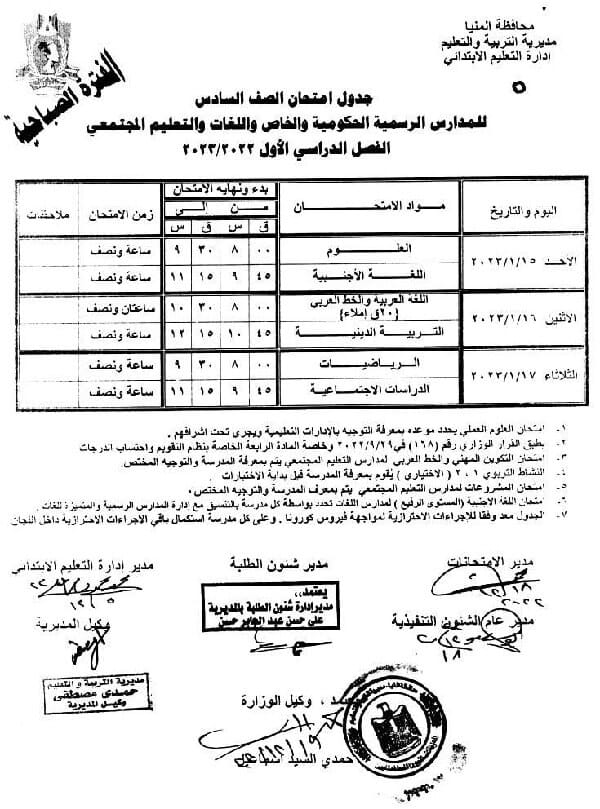 محافظة المنيا
مديرية التربية والتعليم
إدارة التعليم الابتدائي
الفترة الصباحية
٥
جدول امتحان الصف السادس
للمدارس الرسمية الحكومية والخاص واللغات والتعليم المجتمعي
الفصل الدراسي الأول ٢٠٢٣/٢٠٢٢
اليوم والتاريخ مواد الامتحان بدء ونهاية الامتحان زمن الامتحان ملاحظات
من إلى
ق س ق س
الاحد ٢٠٢٣/١/١٥ العلوم ٠٠ ٨ ٣٠ ٩ ساعة ونصف
اللغة الأجنبية ٤٥ ٩ ١٥ ١١ ساعة ونصف
الاثنين ٢٠٢٣/١/١٦ اللغة العربية والخط العربى {٢٠ق إملاء} ٠٠ ٨ ٣٠ ١٠ ساعتان ونصف
التربية الدينية ٤٥ ١٠ ١٥ ١٢ ساعة ونصف
الثلاثاء ٢٠٢٣/١/١٧ الرياضيات ٠٠ ٨ ٣٠ ٩ ساعة ونصف
الدراسات الاجتماعية ٤٥ ٩ ١٥ ١١ ساعة ونصف
١- امتحان العلوم العملي يحدد موعده بمعرفة التوجيه بالإدارات التعليمية ويجرى تحت اشرافهم .
٢- يطبق القرار الوزاري رقم (١٦٨) في ٢٠٢٢/٩/٢٩ وخاصة المادة الرابعة الخاصة بنظم التقويم واحتساب الدرجات
٣- امتحان التكوين المهني والخط العربى لمدارس التعليم المجتمعي يتم بمعرفة المدرسة والتوجيه المختص.
٤- النشاط التربوي ١ ، ٢ (الاختياري) يُقوم بمعرفة المدرسة قبل بداية الاختبارات .
٥- امتحان المشروعات لمدارس التعليم المجتمعي يتم بمعرف المدرسة والتوجيه المختص.
٦- امتحان اللغة الاجنبية (المستوى الرفيع) لمدارس اللغات تحدد بواسطة كل مدرسة بالتنسيق مع إدارة المدارس الرسمية والمتميزة للغات .
٧- الجدول معد وفقا للإجراءات الاحترازية لمواجهة فيروس كورونا . وعلى كل مدرسة استكمال باقي الإجراءات الاحترازية داخل اللجان
مدير الامتحانات مدير شئون الطلبة مدير إدارة التعليم الابتدائي
يعتمد،،
مدير إدارة شئون الطلبة بالمديرية
على حسن عبد الجابر حسن
مدير عام الشئون التنفيذية
وكيل المديرية
مديرية التربية و التعليم
حمدى مصطفى
وكيل المديرية
يعتمد ، وكيل الوزارة
حمدي السيد